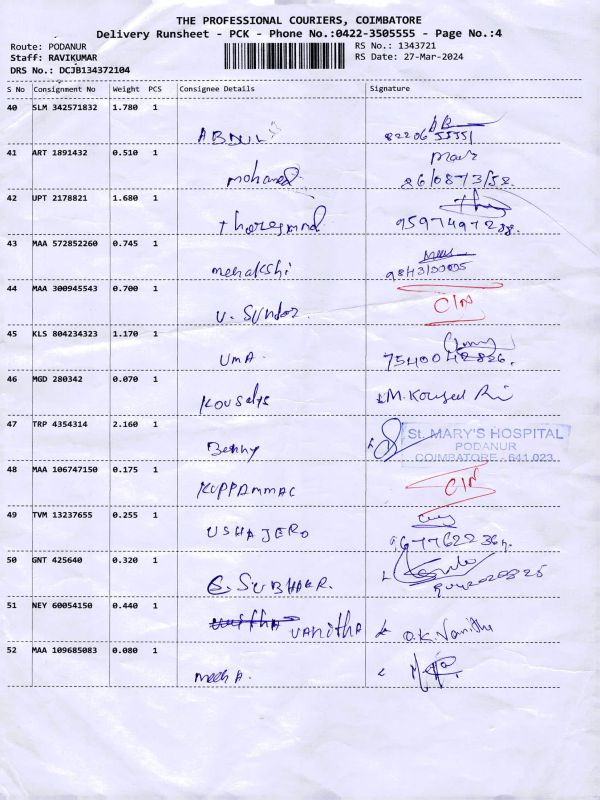 THE PROFESSIONAL COURIERS, COIMBATORE
Delivery Runsheet - PCK - Phone No.:0422-3505555 - Page No.:4
Route: PODANUR
RS No.: 1343721
Staff: RAVIKUMAR
RS Date: 27-Mar-2024
DRS No.: DCJB134372104
S No Consignment No Weight PCS Consignee Details Signature
40 SLM 342571832 1.780 1
ABDUL
41 ART 1891432 0.510 1
mohamed
42 UPT 2178821 1.680 1
43 MAA 572852260 0.745 1
meenakshi
44 MAA 300945543 0.700 1
V. Sundar CIN
45 KLS 804234323 1.170 1
UMA
46 MGD 280342 0.070 1
Kousalya
47 TRP 4354314 2.160 1
Benny
St. MARY'S HOSPITAL
PODANUR
COIMBATORE - 641 023
48 MAA 106747150 0.175 1
KUPPAMMAC CIN
49 TVM 13237655 0.255 1
USHAJERO
50 GNT 425640 0.320 1
51 NEY 60054150 0.440 1
VANITHA O.K. Vanitha
52 MAA 109685083 0.080 1